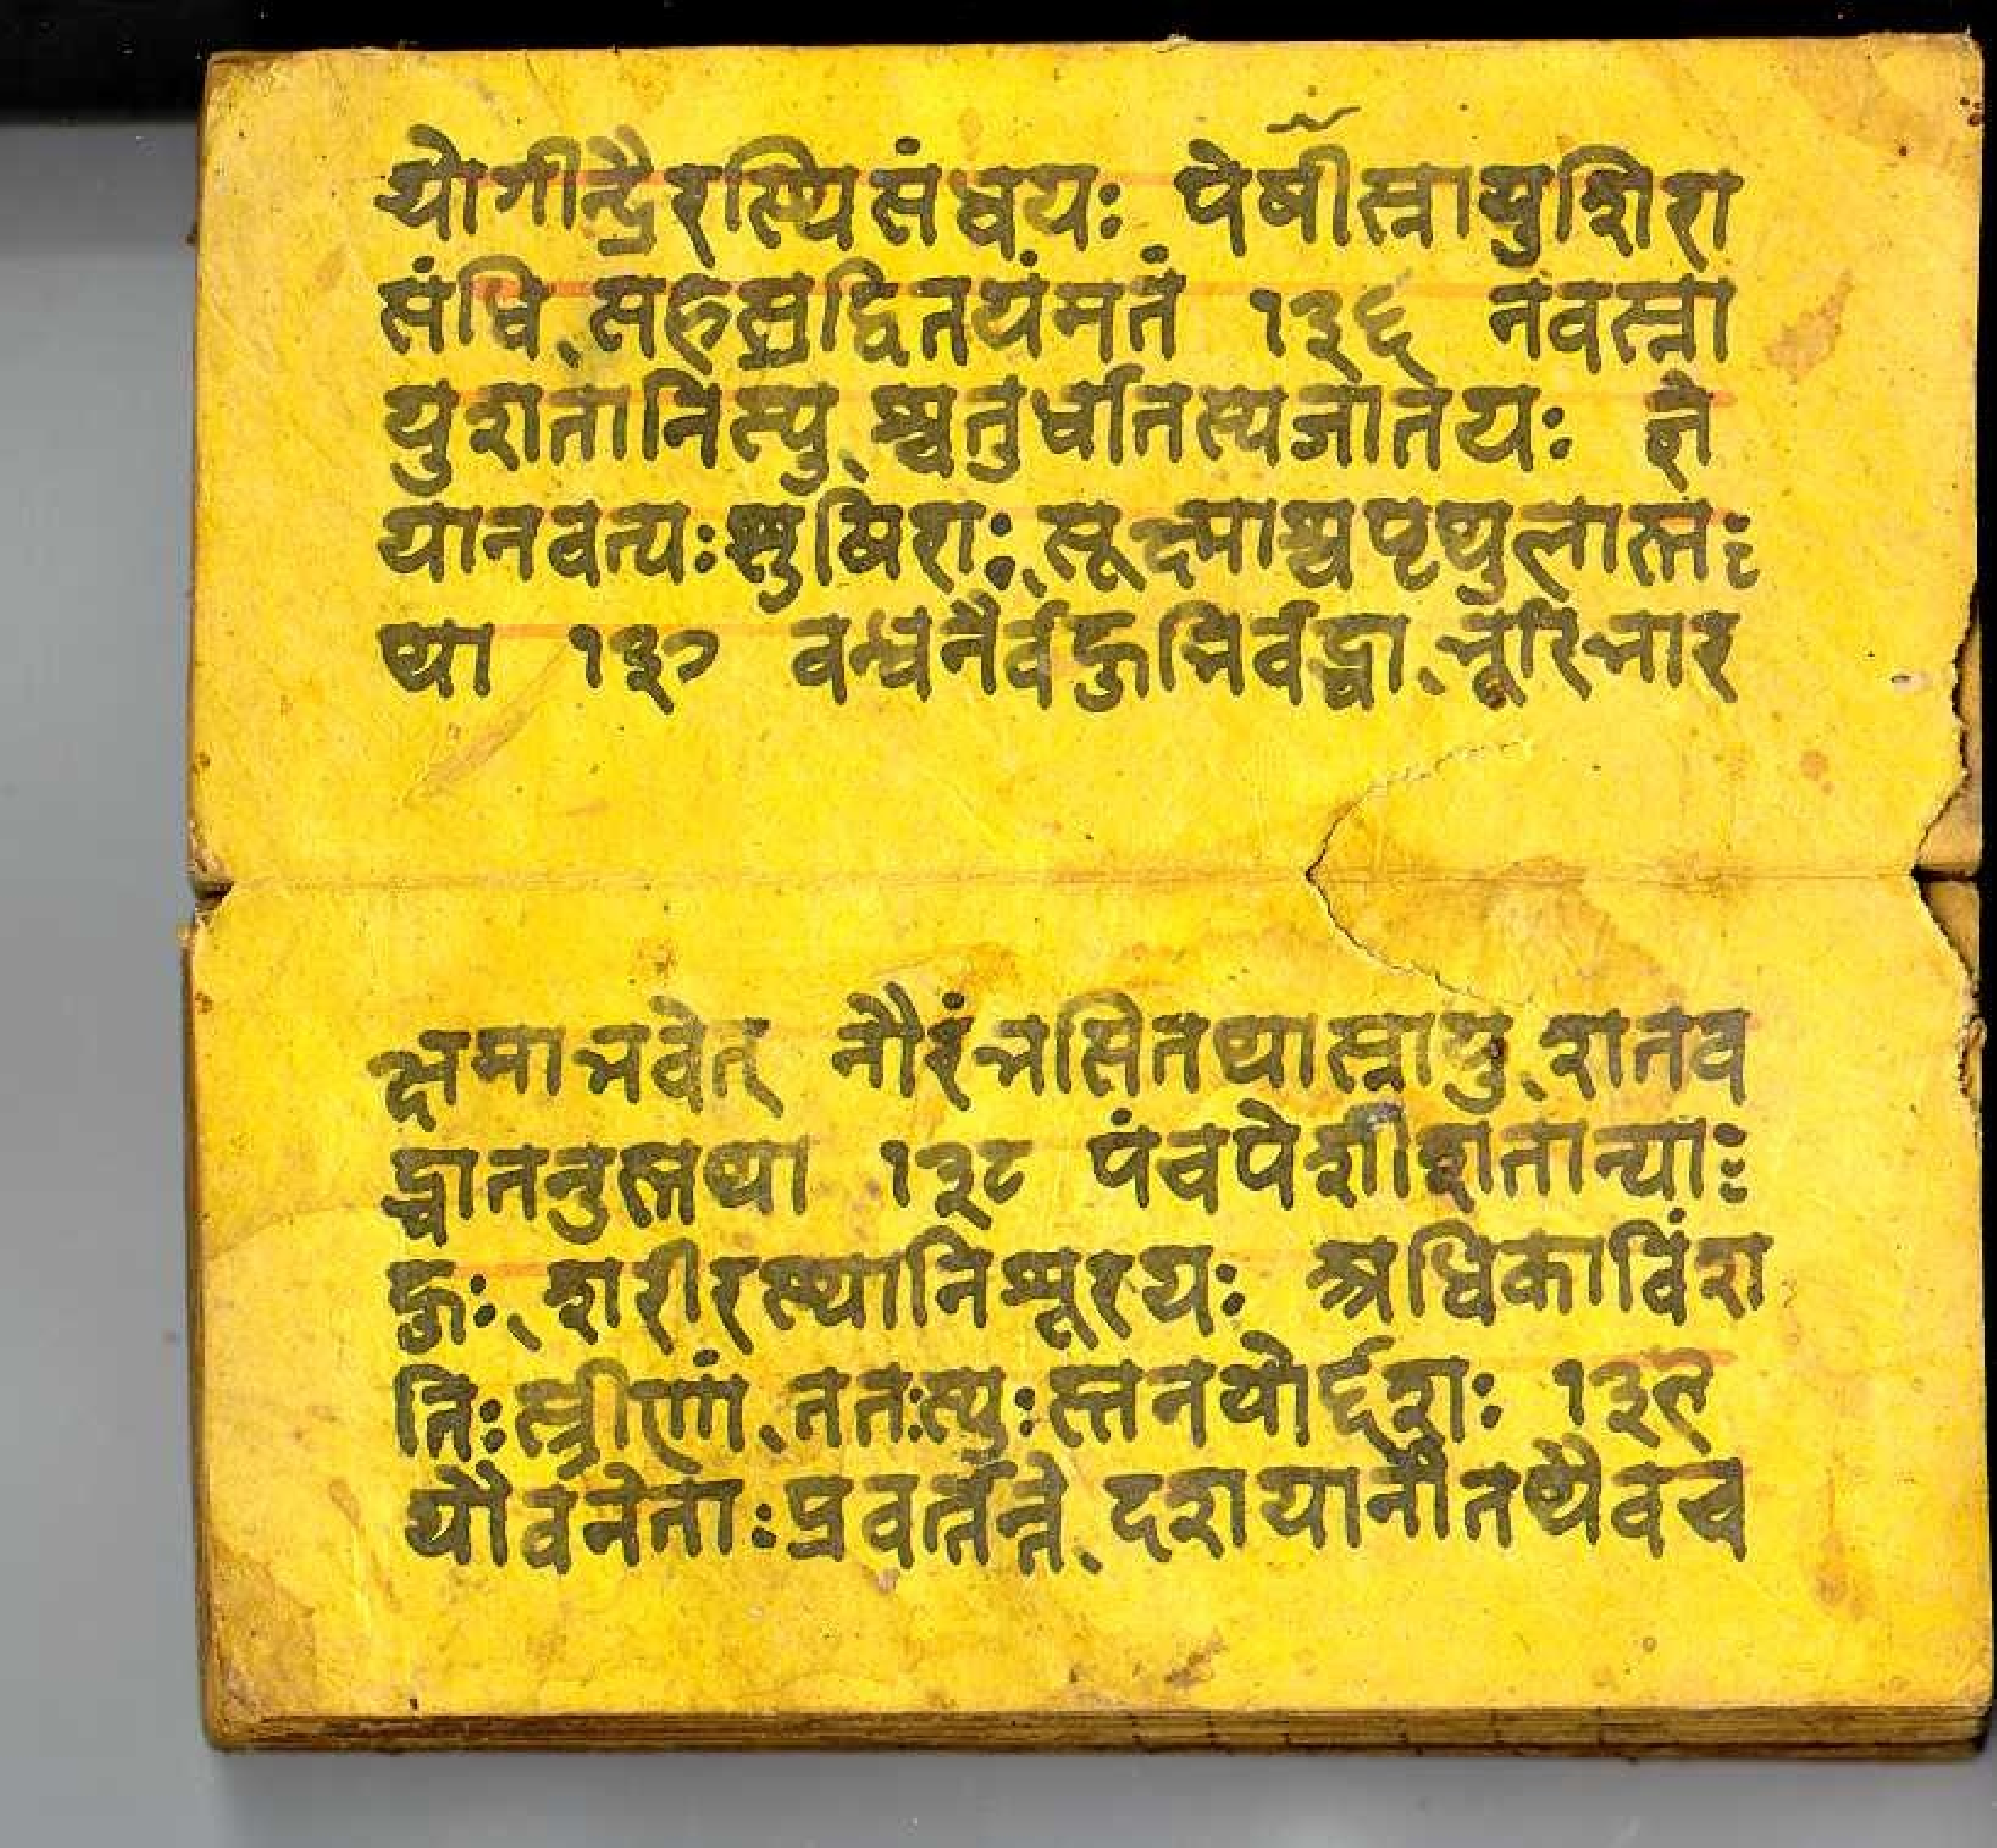 योगीन्द्रैरस्थिसंधयः पेषीस्नायुशिरा
संधि सहस्रद्वितयंमतं १३६ नवस्ना
युशतानिस्यु श्चतुर्धातस्यजातयः ज्ञे
यानवन्यःसुषिराः सूक्ष्माश्चपृथुलास्तः
था १३७ वन्धनैर्वहुभिर्वद्धा भूरिभार
क्षमाभवेत् नौरंभसितथास्नायु शतव
द्धातनुस्तथा १३८ पंचपेशीशतान्याः
हुः शरीरस्थानिशूरयः अधिकाविंश
तिःस्त्रीणां ततःस्युःस्तनयोर्द्दशः १३९
यौवनेताःप्रवर्तन्ते दशयानौतथैवच